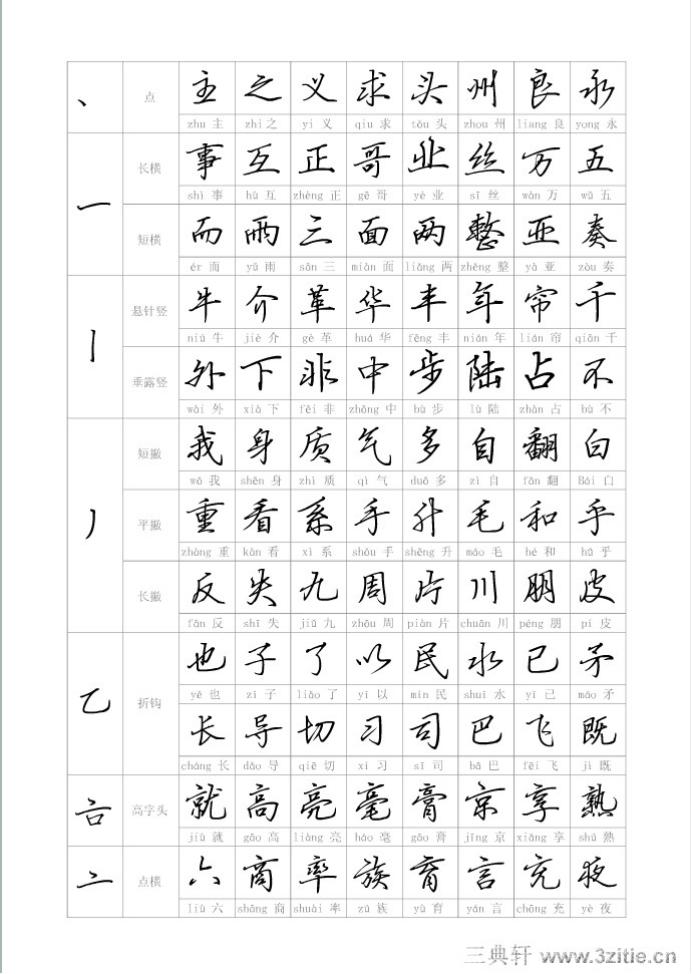 、 点 主 之 义 求 头 州 良 永
zhu 主 zhi 之 yi 义 qiu 求 tóu 头 zhou 州 liang 良 yong 永
一 长横 事 互 正 哥 业 丝 万 五
shì 事 hù 互 zhèng 正 gē 哥 yè 业 sī 丝 wàn 万 wǔ 五
短横 而 雨 三 面 两 整 亚 奏
ér 而 yǔ 雨 sān 三 miàn 面 liǎng 两 zhěng 整 yà 亚 zòu 奏
丨 悬针竖 牛 介 革 华 丰 年 帘 千
niú 牛 jiè 介 gé 革 huá 华 fēng 丰 nián 年 lián 帘 qiān 千
垂露竖 外 下 非 中 步 陆 占 不
wài 外 xià 下 fēi 非 zhōng 中 bù 步 lù 陆 zhàn 占 bù 不
丿 短撇 我 身 质 气 多 自 翻 白
wǒ 我 shēn 身 zhì 质 qì 气 duō 多 zì 自 fān 翻 Bái 白
平撇 重 看 系 手 升 毛 和 乎
zhòng 重 kàn 看 xì 系 shǒu 手 shēng 升 máo 毛 hé 和 hū 乎
长撇 反 失 九 周 片 川 朋 皮
fǎn 反 shī 失 jiǔ 九 zhōu 周 piàn 片 chuān 川 péng 朋 pí 皮
乙 折钩 也 子 了 以 民 水 已 矛
yě 也 zǐ 子 liǎo 了 yǐ 以 mín 民 shuǐ 水 yǐ 已 máo 矛
长 导 切 习 司 巴 飞 既
cháng 长 dǎo 导 qiē 切 xí 习 sī 司 bā 巴 fēi 飞 jì 既
高字头 就 高 亮 毫 膏 京 享 熟
jiù 就 gāo 高 liàng 亮 háo 毫 gāo 膏 jīng 京 xiǎng 享 shú 熟
亠 点横 六 商 率 族 育 言 充 夜
liù 六 shāng 商 shuài 率 zú 族 yù 育 yán 言 chōng 充 yè 夜
三典轩 www.3zitie.cn